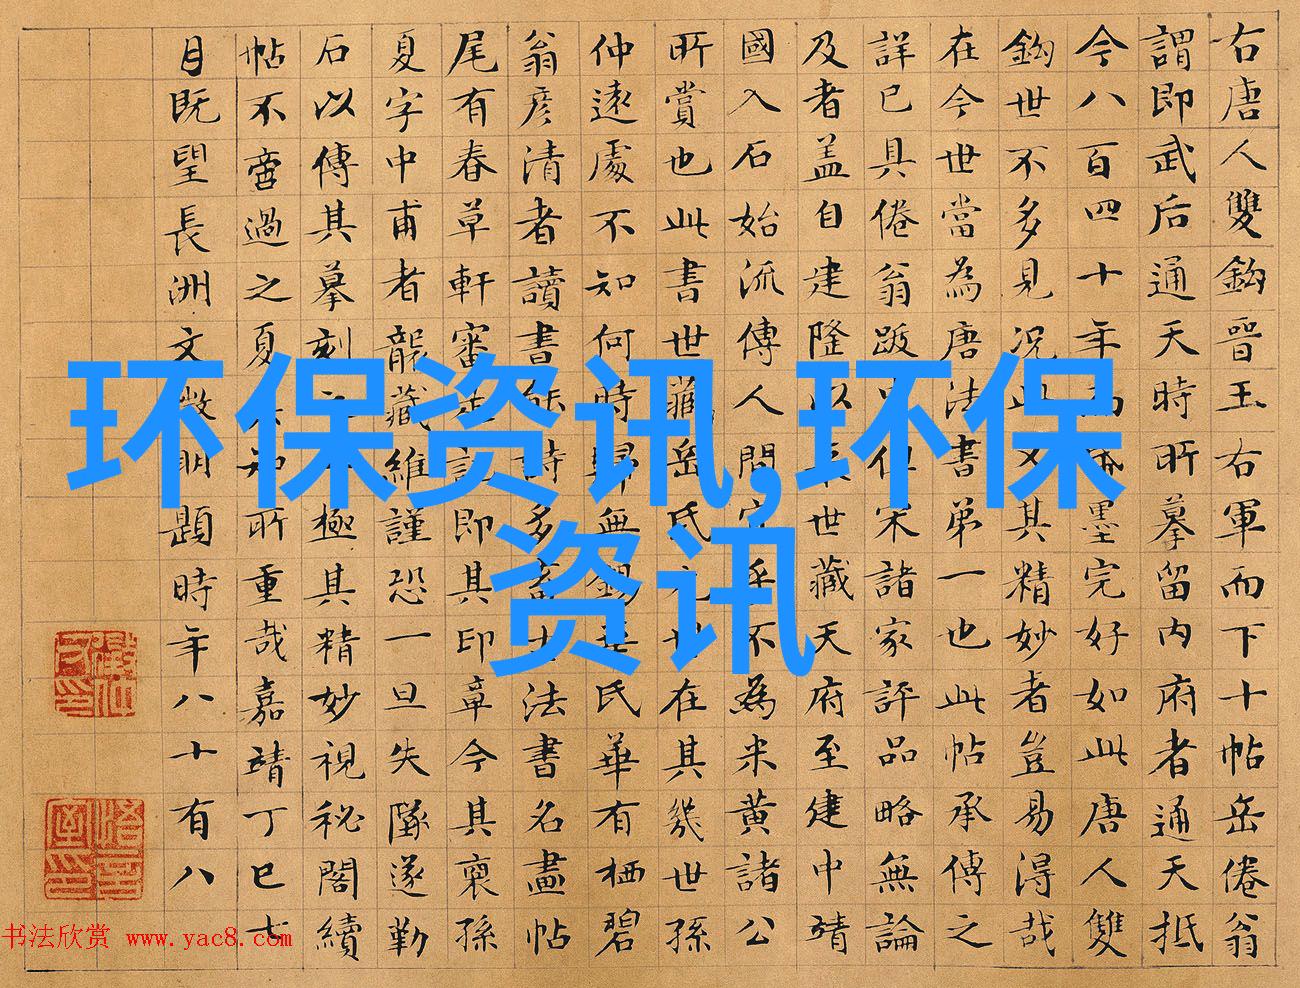 右唐人雙鈎晉王右軍而下十帖岳倦翁
謂即武后通天時所摹留內府者通天抵
今八百四十年而墨完好如此唐人雙
鈎世不多見況此又其精妙者豈易得哉
在今世當為唐法書第一也此帖承傳之
詳已具倦翁跋但宋諸家評品略無論
及者盖自建隆以世藏天府至建中靖
國入石始流傳人間乎不為米黃諸公
所賞也此書世藏岳氏在其幾世孫
仲遠處不知何時歸無錫氏華有栖碧
翁彦清者讀書能詩多法書名畫帖
尾有春草軒審定記即其印章今其裔孫
夏字中甫者襲藏維謹恐一旦失墜遂勒
石以傳其摹刻極其精妙視秘閣續
帖不啻過之夏知所重哉嘉靖丁巳七
月既望長洲文徵明題時年八十有八
环保资讯,环保
资讯
书法欣赏 www.yac8.com